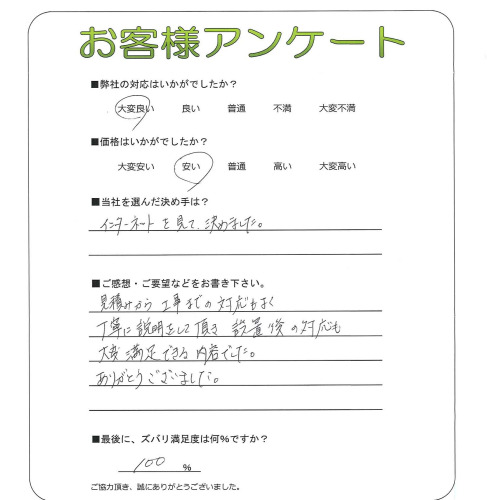 お客様アンケート
■弊社の対応はいかがでしたか？
大変良い 良い 普通 不満 大変不満
■価格はいかがでしたか？
大変安い 安い 普通 高い 大変高い
■当社を選んだ決め手は？
インターネットを見て、決めました。
■ご感想・ご要望などをお書き下さい。
見積みから工事までの対応もよく
丁寧に説明をして頂き 設置後の対応も
大変満足できる内容でした。
ありがとうございました。
■最後に、ズバリ満足度は何％ですか？
100 ％
ご協力頂き、誠にありがとうございました。